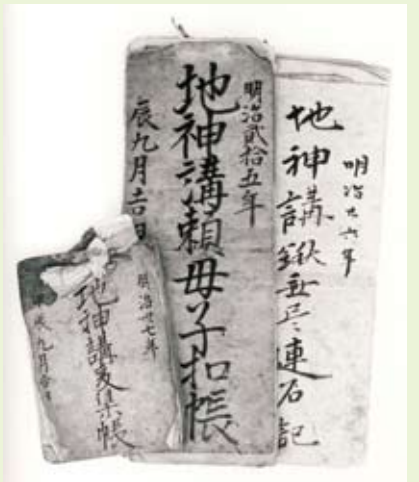 明治廿六年
地神講
連名記
明治貳拾五年
地神講頼母子扣帳
辰九月吉日
明治卅七年
地神講
集帳
九月吉日